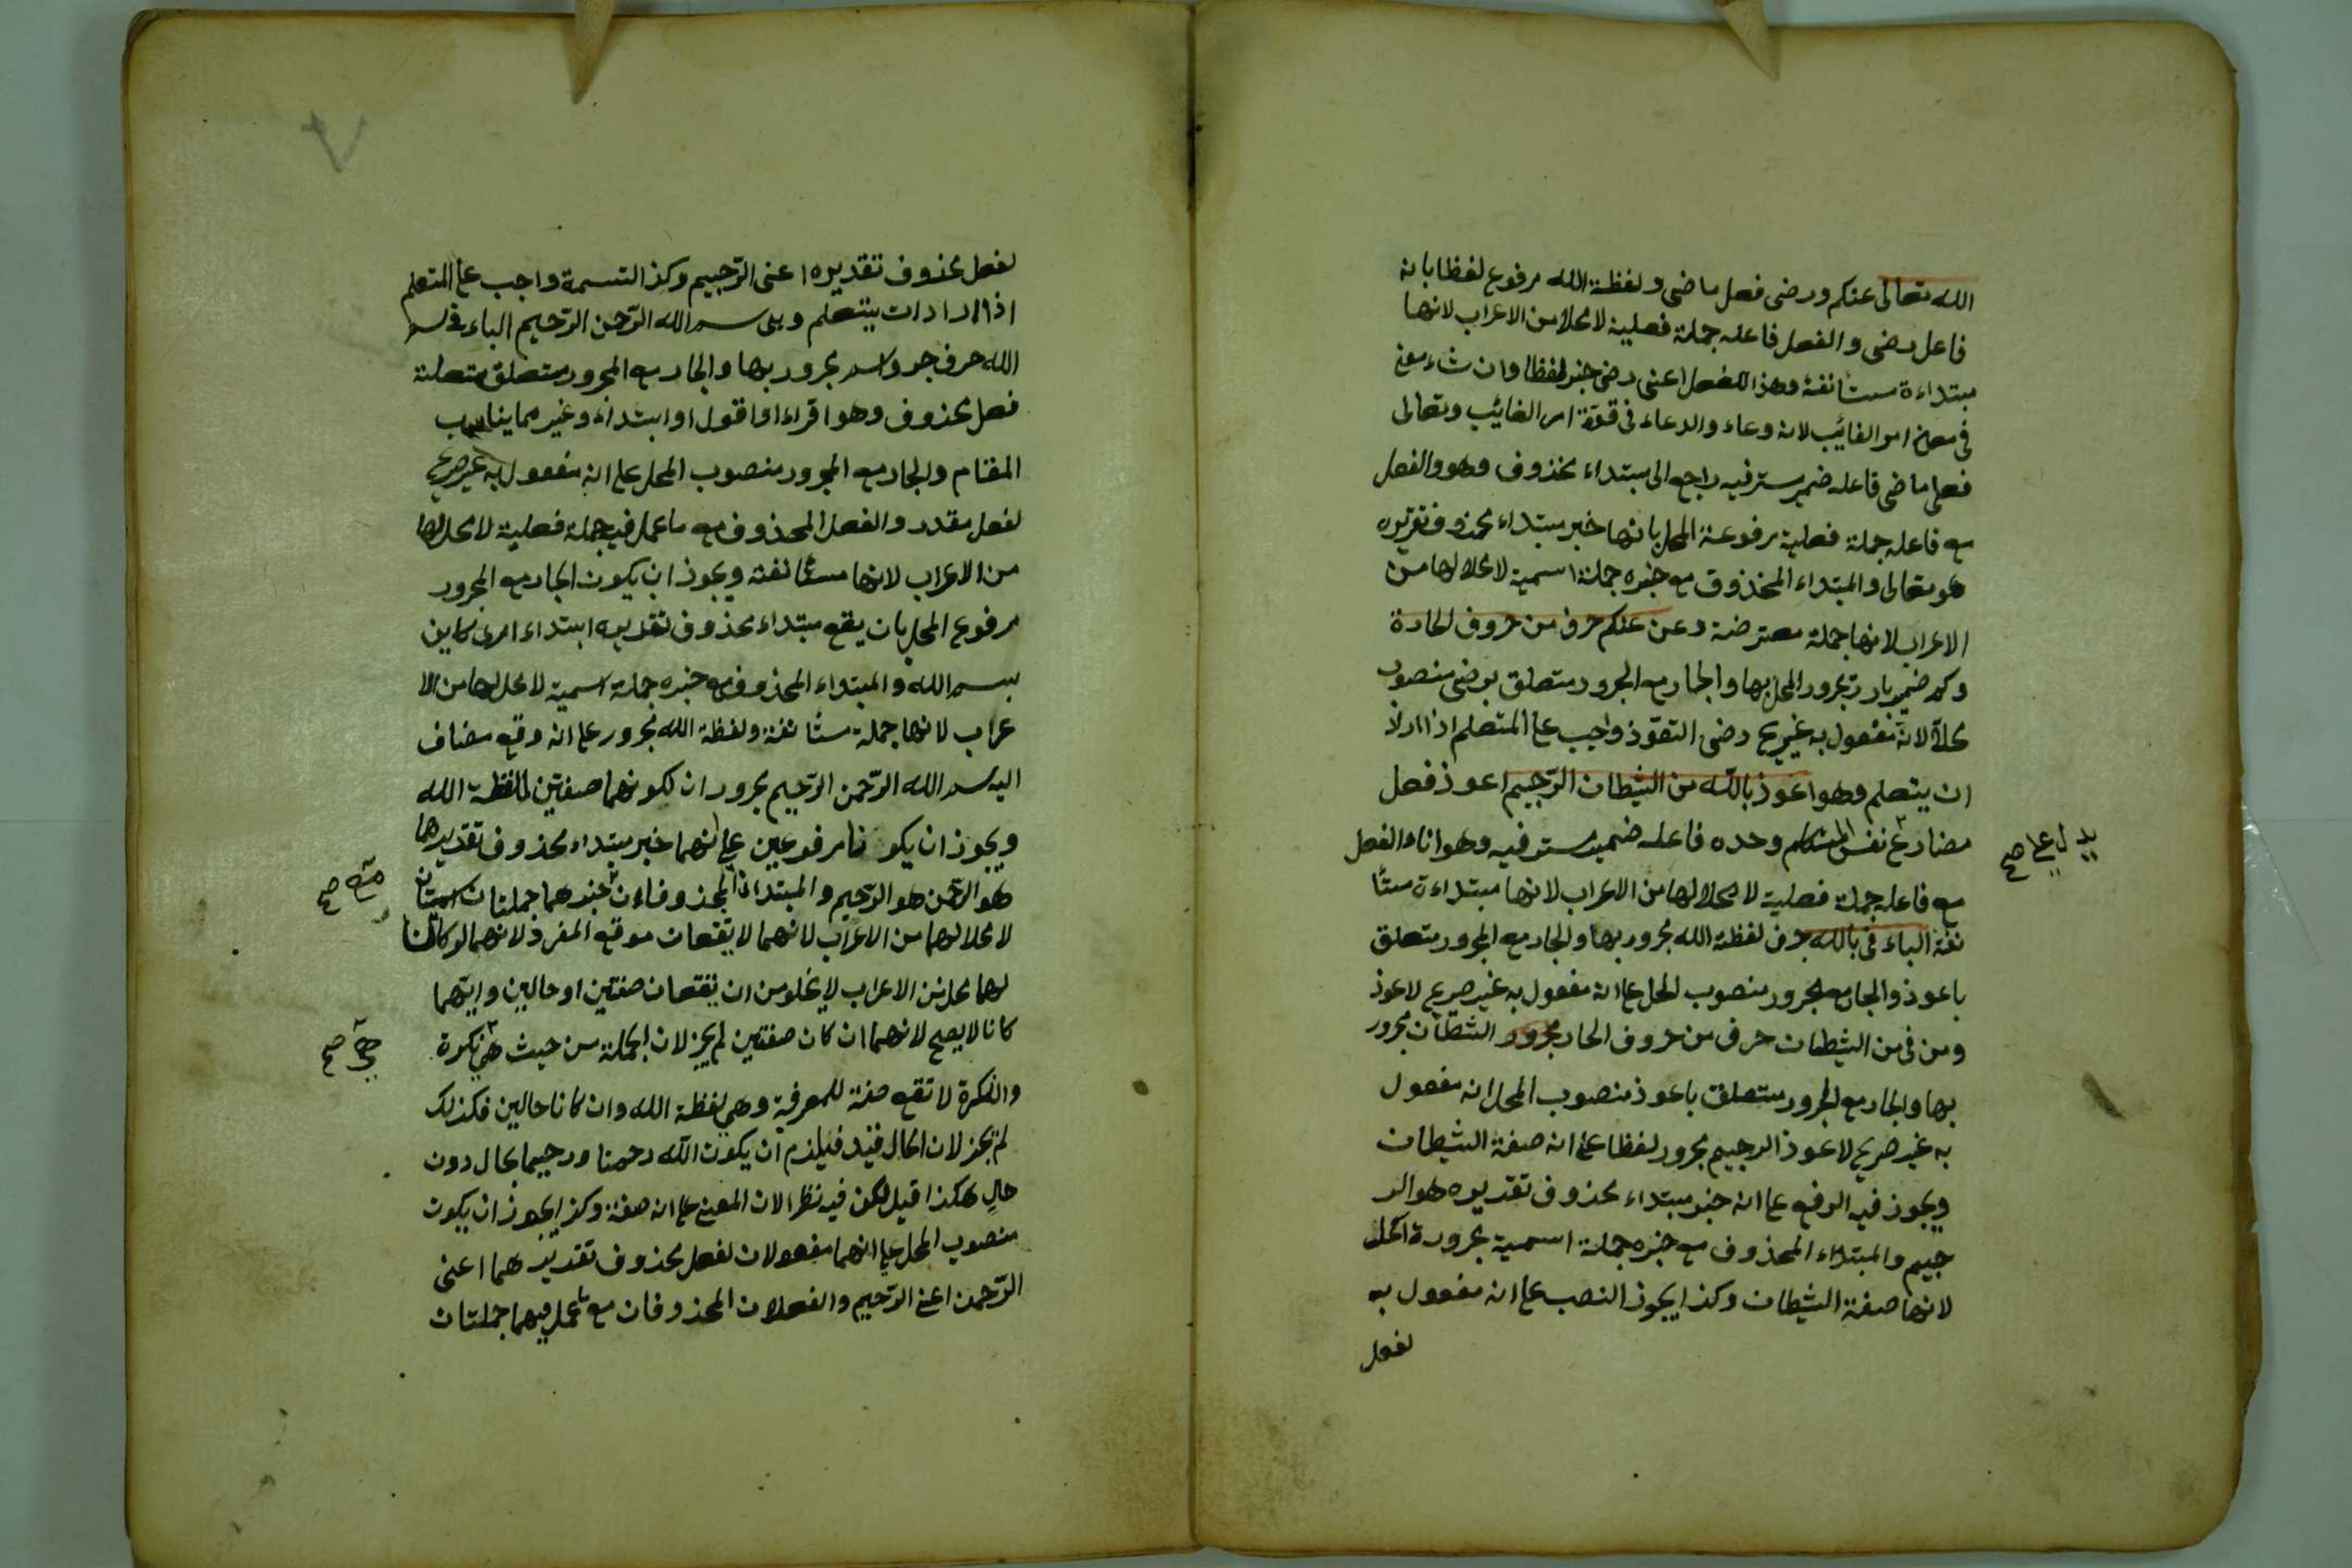 الله تعالى عنكم ورضى فعل ماضى ولفظة الله مرفوع لفظا بانه
فاعل رضى والفعل فاعله جملة فعلية لا محلا من الاعراب لانها
مبتداءة مستأنفة وهذا الفعل اعنى رضى خبر لفظا وان شاء معنى
فى معنى امر الغائب لانه دعاء والدعاء فى قوة امر الغائب وتعالى
فعل ماضى فاعله ضمير مستر فيه راجع الى مبتداء محذوف وهو والفعل
مع فاعله جملة فعلية مرفوعة المحل بانها خبر مبتداء محذوف تقديره
هو تعالى والمبتداء المحذوف مع خبره جملة اسمية لا محلا لها من
الاعراب لانها جملة معترضة وعن عنكم حرف من حروف الجارة
وكم ضمير بارز مجرور المحل بها والجار مع المجرور متعلق برضى منصوب
محلا لانه مفعول به غير صريح رضى التعوذ واجب على المتعلم اذا اراد
ان يتعلم وهو اعوذ بالله من الشيطان الرجيم اعوذ فعل
مضارع نفس المتكلم وحده فاعله ضمير مستر فيه وهو انا والفعل
مع فاعله جملة فعلية لا محلا لها من الاعراب لانها مبتداءة مستأ
نفة الباء فى بالله حرف لفظة الله مجرور بها والجار مع المجرور متعلق
باعوذ والجار مع المجرور منصوب المحل على انه مفعول به غير صريح لاعوذ
ومن فى من الشيطان حرف من حروف الجار مجرور الشيطان مجرور
بها والجار مع المجرور متعلق باعوذ منصوب المحل انه مفعول
به غير صريح لاعوذ الرجيم مجرور لفظا على انه صفة الشيطان
ويجوز فيه الرفع على انه خبر مبتداء محذوف تقديره هو الر
جيم والمبتداء المحذوف مع خبره جملة اسمية مجرورة المحل
لانها صفة الشيطان وكذا يجوز النصب على انه مفعول به
لفعل
لفعل محذوف تقديره اعنى الرجيم وكذا التسمية واجب على المتعلم
اذا اراد ان يتعلم وهى بسم الله الرحمن الرحيم الباء فى بسم
الله حرف جر واسم مجرور بها والجار مع المجرور متعلق متعلقة
فعل محذوف وهو اقراء او اقول او ابتداء وغير مما يناسب
المقام والجار مع المجرور منصوب المحل على انه مفعول به غير صريح
لفعل مقدر والفعل المحذوف مع ما عمل فيه جملة فعلية لا محل لها
من الاعراب لانها مستأنفة ويجوز ان يكون الجار مع المجرور
مرفوع المحل بان يقع مبتداء محذوف تقديره ابتداء امرى كاين
بسم الله والمبتداء المحذوف مع خبره جملة اسمية لا محل لها من الا
عراب لانها جملة مستأنفة ولفظة الله مجرور على انه وقع مضاف
اليه اسم الله الرحمن الرحيم مجروران لكونهما صفتين للفظة الله
ويجوز ان يكونا مرفوعين على انهما خبر مبتداء محذوف تقديرهما
هو الرحمن هو الرحيم والمبتدأن المحذوفان خبرهما جملتان اسميتان
لا محلا لهما من الاعراب لانهما لا يقعان موقع المفرد لانهما لو كانتا
لهما محل من الاعراب لا يخلو من ان يقعان صفتين او حالين وايتهما
كانا لا يصح لانهما ان كان صفتين لم يجز لان الجملة من حيث هى نكرة
والنكرة لا تقع صفة للمعرفة وهى لفظة الله وان كانا حالين فكذلك
لم يجز لان الحال قيد فيلزم ان يكون الله رحمنا ورحيما بحال دون
حال هكذا قيل لكن فيه نظر الان المعنى على انه صفة وكذا يجوز ان يكون
منصوب المحل على انهما مفعولان لفعل محذوف تقديرهما اعنى
الرحمن اعنى الرحيم والفعلان المحذوفان مع ما عمل فيهما جملتان
مع صح